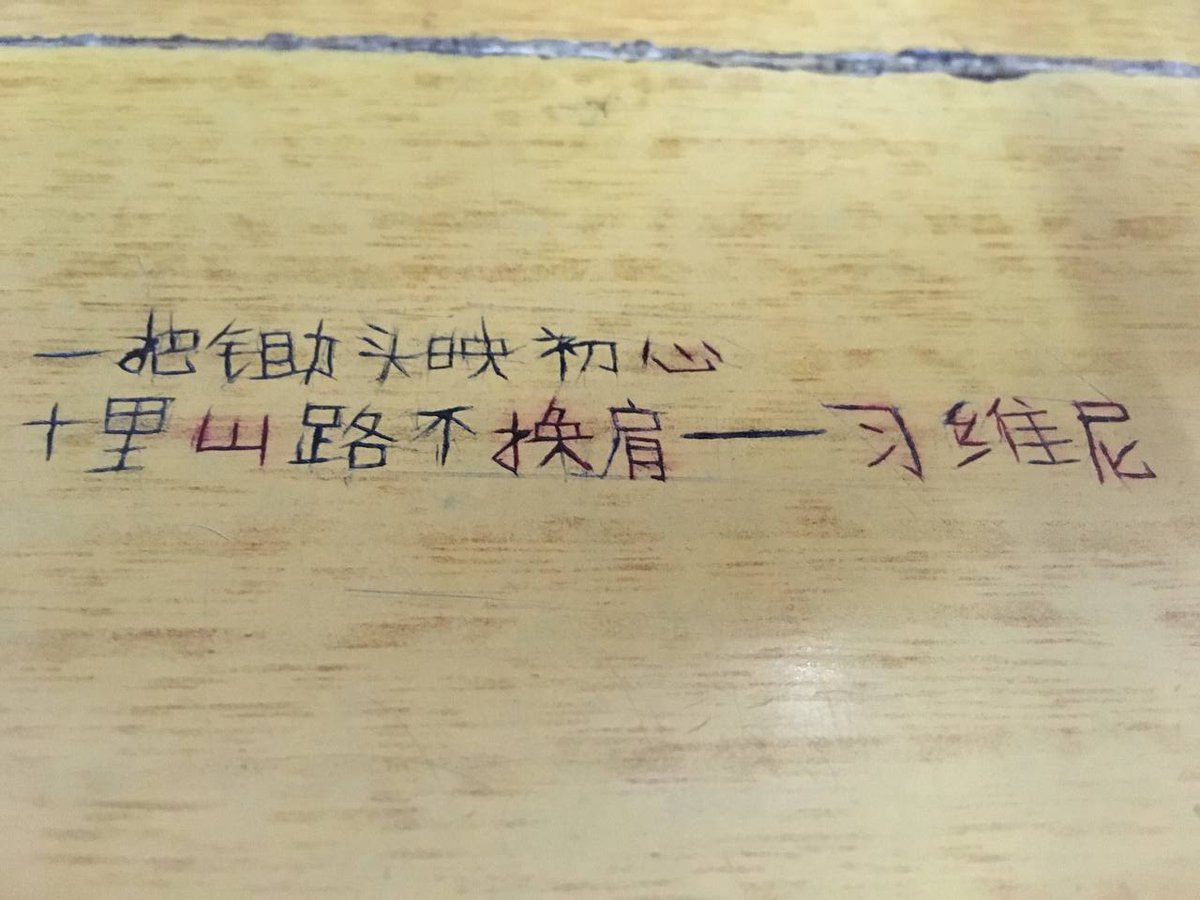 一把锄头映初心
十里山路不换肩——习维尼